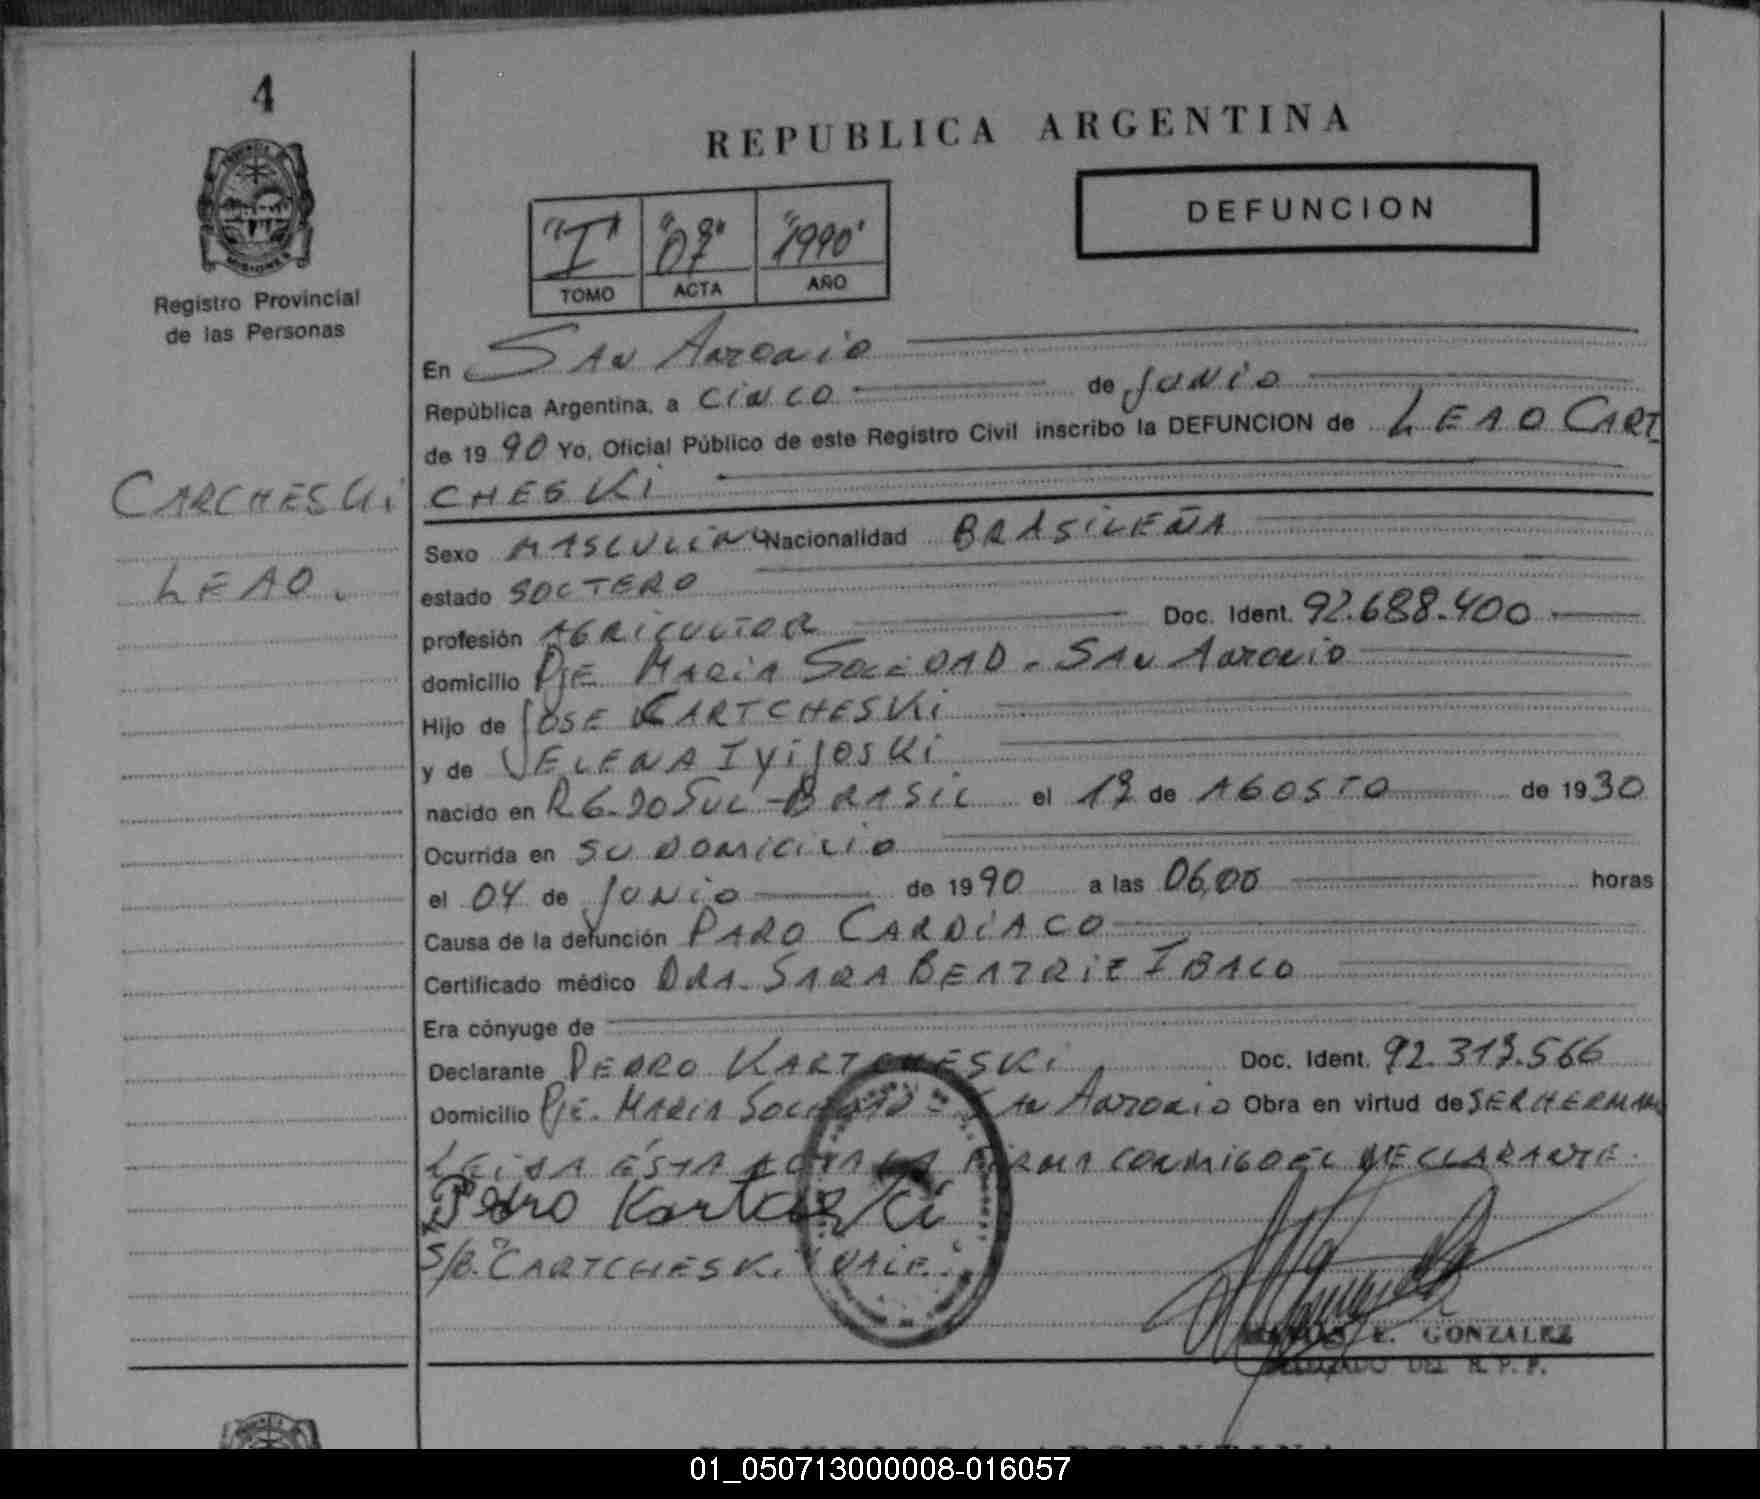 4
REPUBLICA ARGENTINA
DEFUNCION
"I" "07" "1990"
TOMO ACTA AÑO
MISIONES
Registro Provincial
de las Personas
En San Antonio
República Argentina, a cinco de Junio
de 1990 Yo, Oficial Público de este Registro Civil inscribo la DEFUNCION de LEAO CART
CHESKi
CARCHESKi
LEAO.
Sexo MASCULINO Nacionalidad BRASILEÑA
estado SOLTERO
profesión AGRICULTOR Doc. Ident. 92.688.400
domicilio PJE MARIA SOLEDAD - SAN ANTONIO
Hijo de JOSE CARTCHESKi
y de VELENA
nacido en R.G. DO SUL - BRASIL el de AGOSTO de 1930
Ocurrida en SU DOMICILIO
el 04 de JUNIO de 1990 a las 06,00 horas
Causa de la defunción PARO CARDIACO
Certificado médico DRA. SARA BEATRIZ
Era cónyuge de
Declarante PEDRO KARTCHESKi Doc. Ident. 92.313.566
Domicilio PJE. MARIA SOLEDAD - SAN ANTONIO Obra en virtud de SER HERMANO
LEIDA ESTA ACTA LA FIRMA CONMIGO EL DECLARANTE.
Pedro
S/B. "CARTCHESKi" VALE.
E. GONZALEZ
DELEGADO DEL R. P. P.
REPUBLICA ARGENTINA
01_050713000008-016057